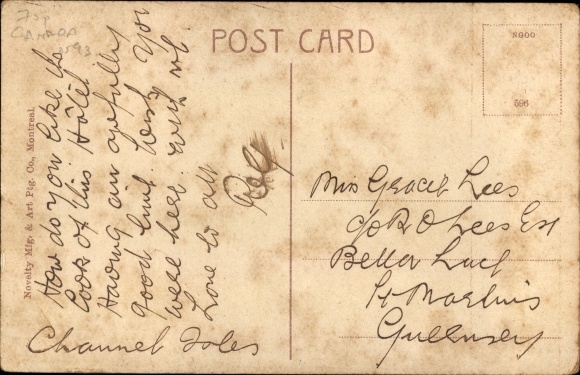 75p
CANADA
3593
POST CARD
NGOO
596
Novelty Mfg. & Art Ptg. Co., Montreal.
How do you like the
look of this Hotel
Having an awfully
good time wish you
were here. Will wr.
Love to all
Reg.
Miss Grace Lees
c/o R O Lees Esq
Bella Luce
St Martins
Guernsey
Channel Isles